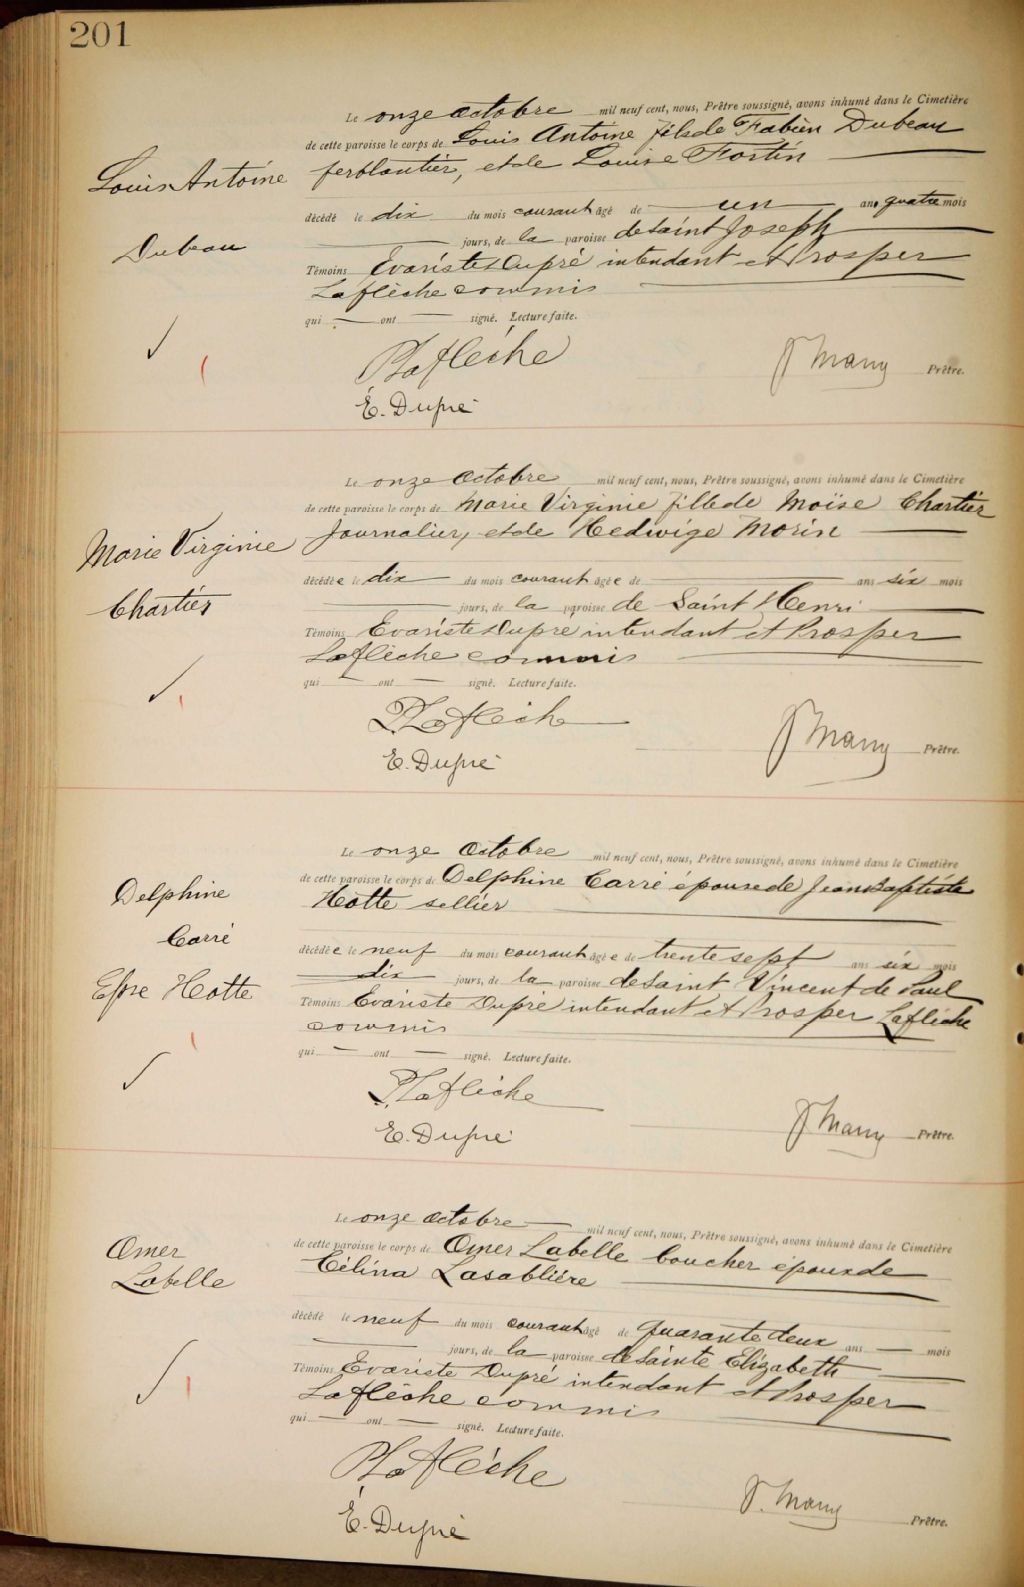 201
Le onze octobre mil neuf cent, nous, Prêtre soussigné, avons inhumé dans le Cimetière
de cette paroisse le corps de Louis Antoine fils de Fabien Dubeau
Louis Antoine
ferblantier, et de Louise Fortin
décédé le dix du mois courant âgé de un ans quatre mois
Dubeau
jours, de la paroisse de Saint Joseph
Témoins Evariste Dupré intendant et Prosper
Laflèche commis
qui ont signé. Lecture faite.
PLaflèche
Many Prêtre.
E. Dupré
Le onze octobre mil neuf cent, nous, Prêtre soussigné, avons inhumé dans le Cimetière
de cette paroisse le corps de Marie Virginie fille de Moïse Chartier
Marie Virginie
Journalier, et de Hedwige Morin
décédée le dix du mois courant âgée de ans six mois
Chartier
jours, de la paroisse de Saint Henri
Témoins Evariste Dupré intendant et Prosper
Laflèche commis
qui ont signé. Lecture faite.
PLaflèche
Many Prêtre.
E. Dupré
Le onze octobre mil neuf cent, nous, Prêtre soussigné, avons inhumé dans le Cimetière
de cette paroisse le corps de Delphine Carré épouse de Jean Baptiste
Delphine
Hotte sellier
Carré
décédée le neuf du mois courant âgée de trente sept ans six mois
Epse Hotte
dix jours, de la paroisse de Saint Vincent de Paul
Témoins Evariste Dupré intendant et Prosper Laflèche
commis
qui ont signé. Lecture faite.
PLaflèche
Many Prêtre.
E. Dupré
Le onze octobre mil neuf cent, nous, Prêtre soussigné, avons inhumé dans le Cimetière
de cette paroisse le corps de Omer Labelle boucher époux de
Omer
Labelle
Célina Lasablière
décédé le neuf du mois courant âgé de quarante deux ans mois
jours, de la paroisse de Sainte Elizabeth
Témoins Evariste Dupré intendant et Prosper
Laflèche commis
qui ont signé. Lecture faite.
PLaflèche
Many Prêtre.
E. Dupré